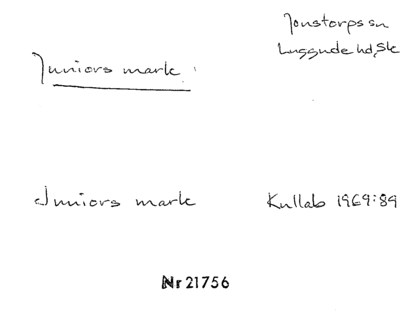 Jonstorps sn
Luggude hd, Sk
Juniors mark
Juniors mark
Kullab 1969:89
Nr 21756